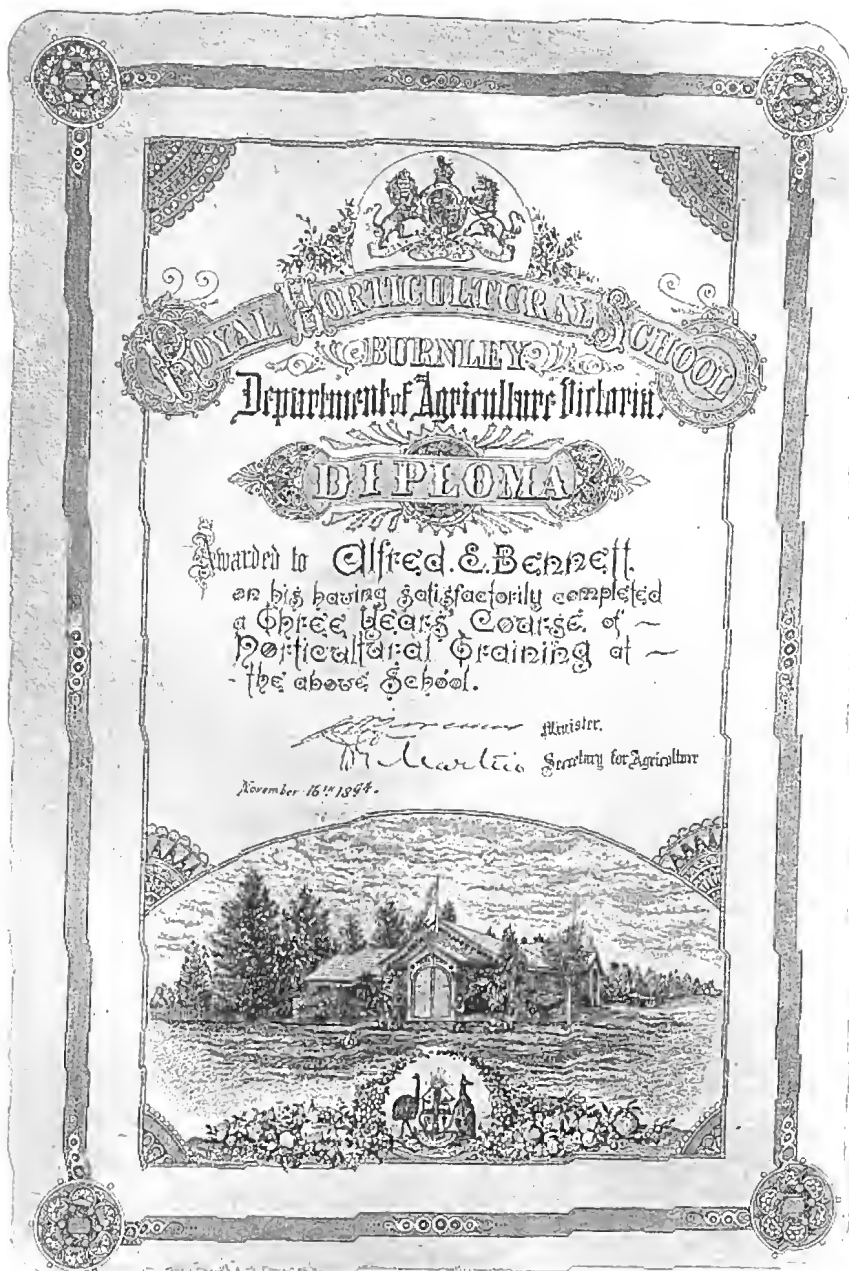 ROYAL HORTICULTURAL SCHOOL
BURNLEY
Department of Agriculture Victoria.
DIPLOMA
Awarded to Alfred. E. Bennett.
on his having satisfactorily completed
a Three Years' Course of ~
Horticultural Training at ~
- the above School.
Minister.
D Martin Secretary for Agriculture
November 16TH 1894.